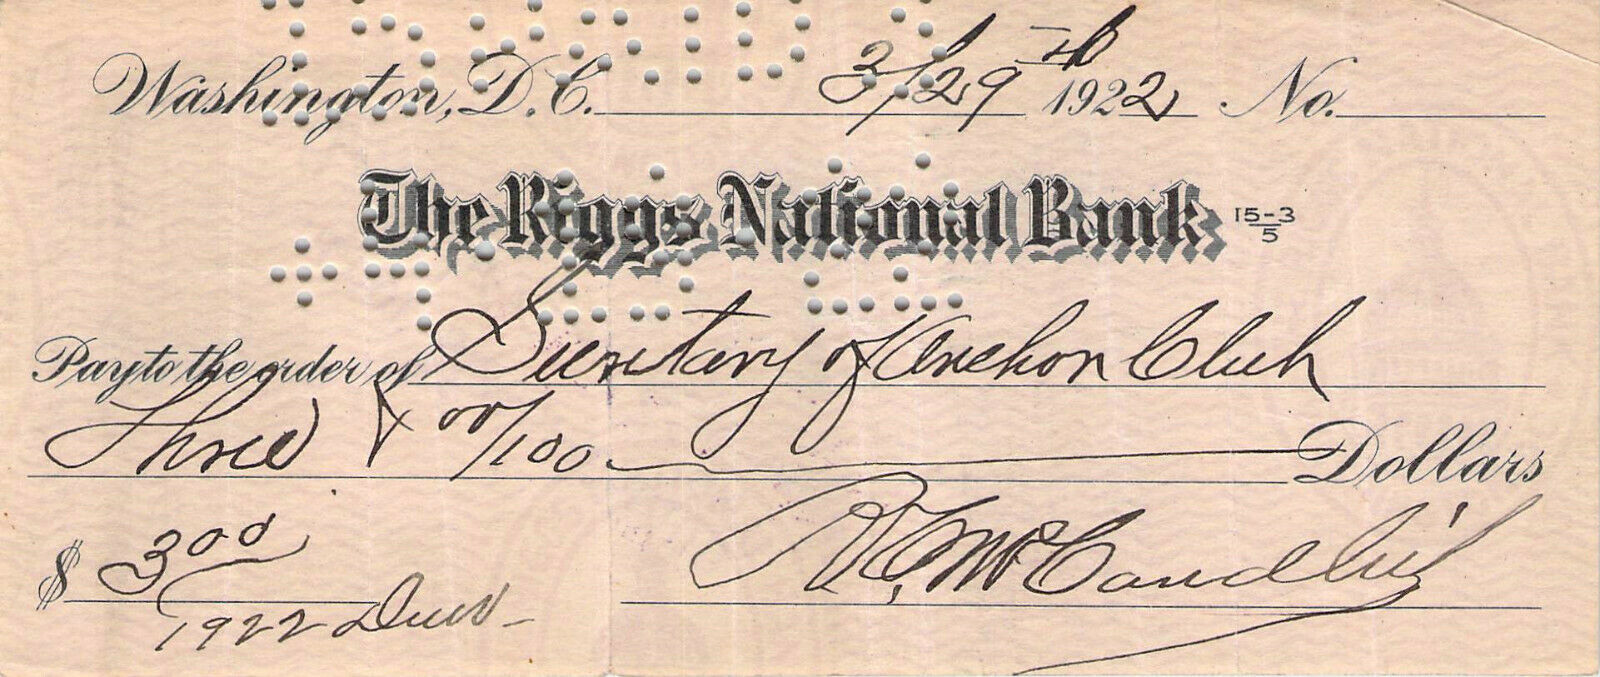 Washington, D.C. 3/29th 1922 No.
The Riggs National Bank 15-3/5
Pay to the order of Secretary of Archon Club
Three & 00/100 Dollars
$ 3.00
1922 Dues